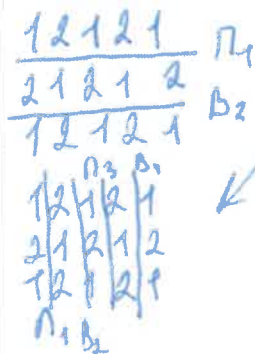 1 2 1 2 1 П₁
2 1 2 1 2
1 2 1 2 1 В₂
П₃ В₄
1 2 1 2 1
2 1 2 1 2
1 2 1 2 1
П₁ В₂